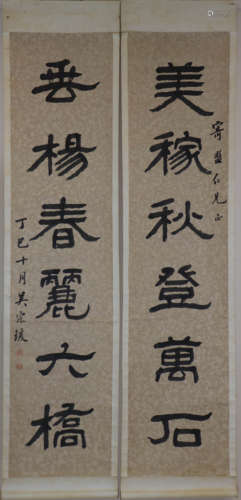 寄盦仁兄正
美稼秋登萬石
垂楊春麗六橋
丁巳十月吳